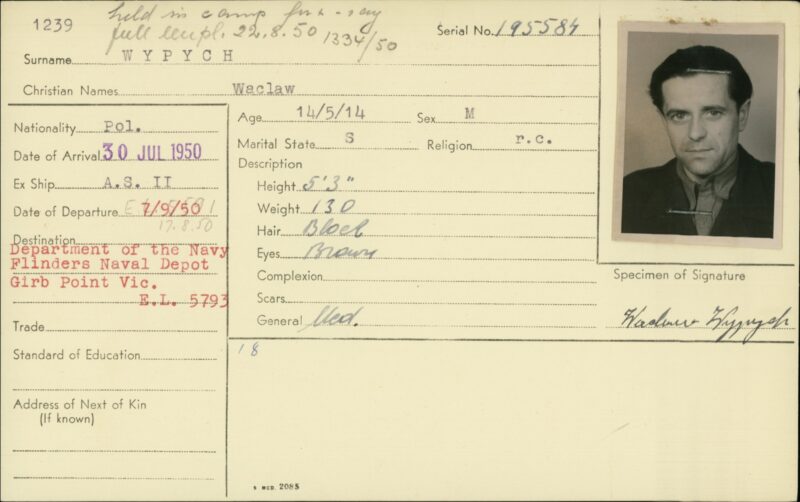 1239
held in camp for x-ray
full empl. 22.8.50 1334/50
Serial No. 195584
Surname WYPYCH
Christian Names Waclaw
Nationality Pol.
Date of Arrival 30 JUL 1950
Ex Ship A.S. II
Date of Departure 7/9/50
17.8.50
Destination
Department of the Navy
Flinders Naval Depot
Girb Point Vic.
E.L. 5793
Trade
Standard of Education
Address of Next of Kin
(If known)
Age 14/5/14 Sex M
Marital State S Religion r.c.
Description
Height 5'3"
Weight 130
Hair Black
Eyes Brown
Complexion
Scars
General Med.
18
Specimen of Signature
Waclaw Wypych
S MED. 2085